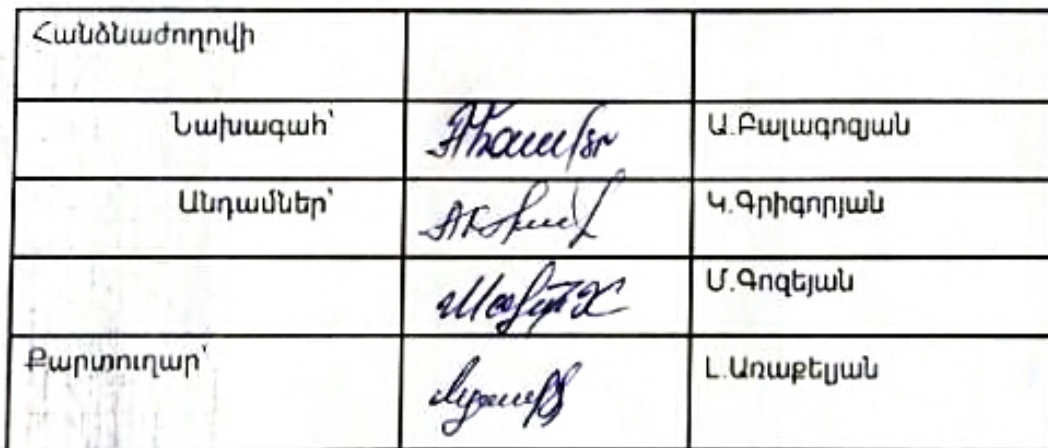 Հանձնաժողովի
Նախագահ՝ Ա.Բալագոզյան
Անդամներ՝ Կ.Գրիգորյան
Մ.Գոզեյան
Քարտուղար՝ Լ.Առաքելյան